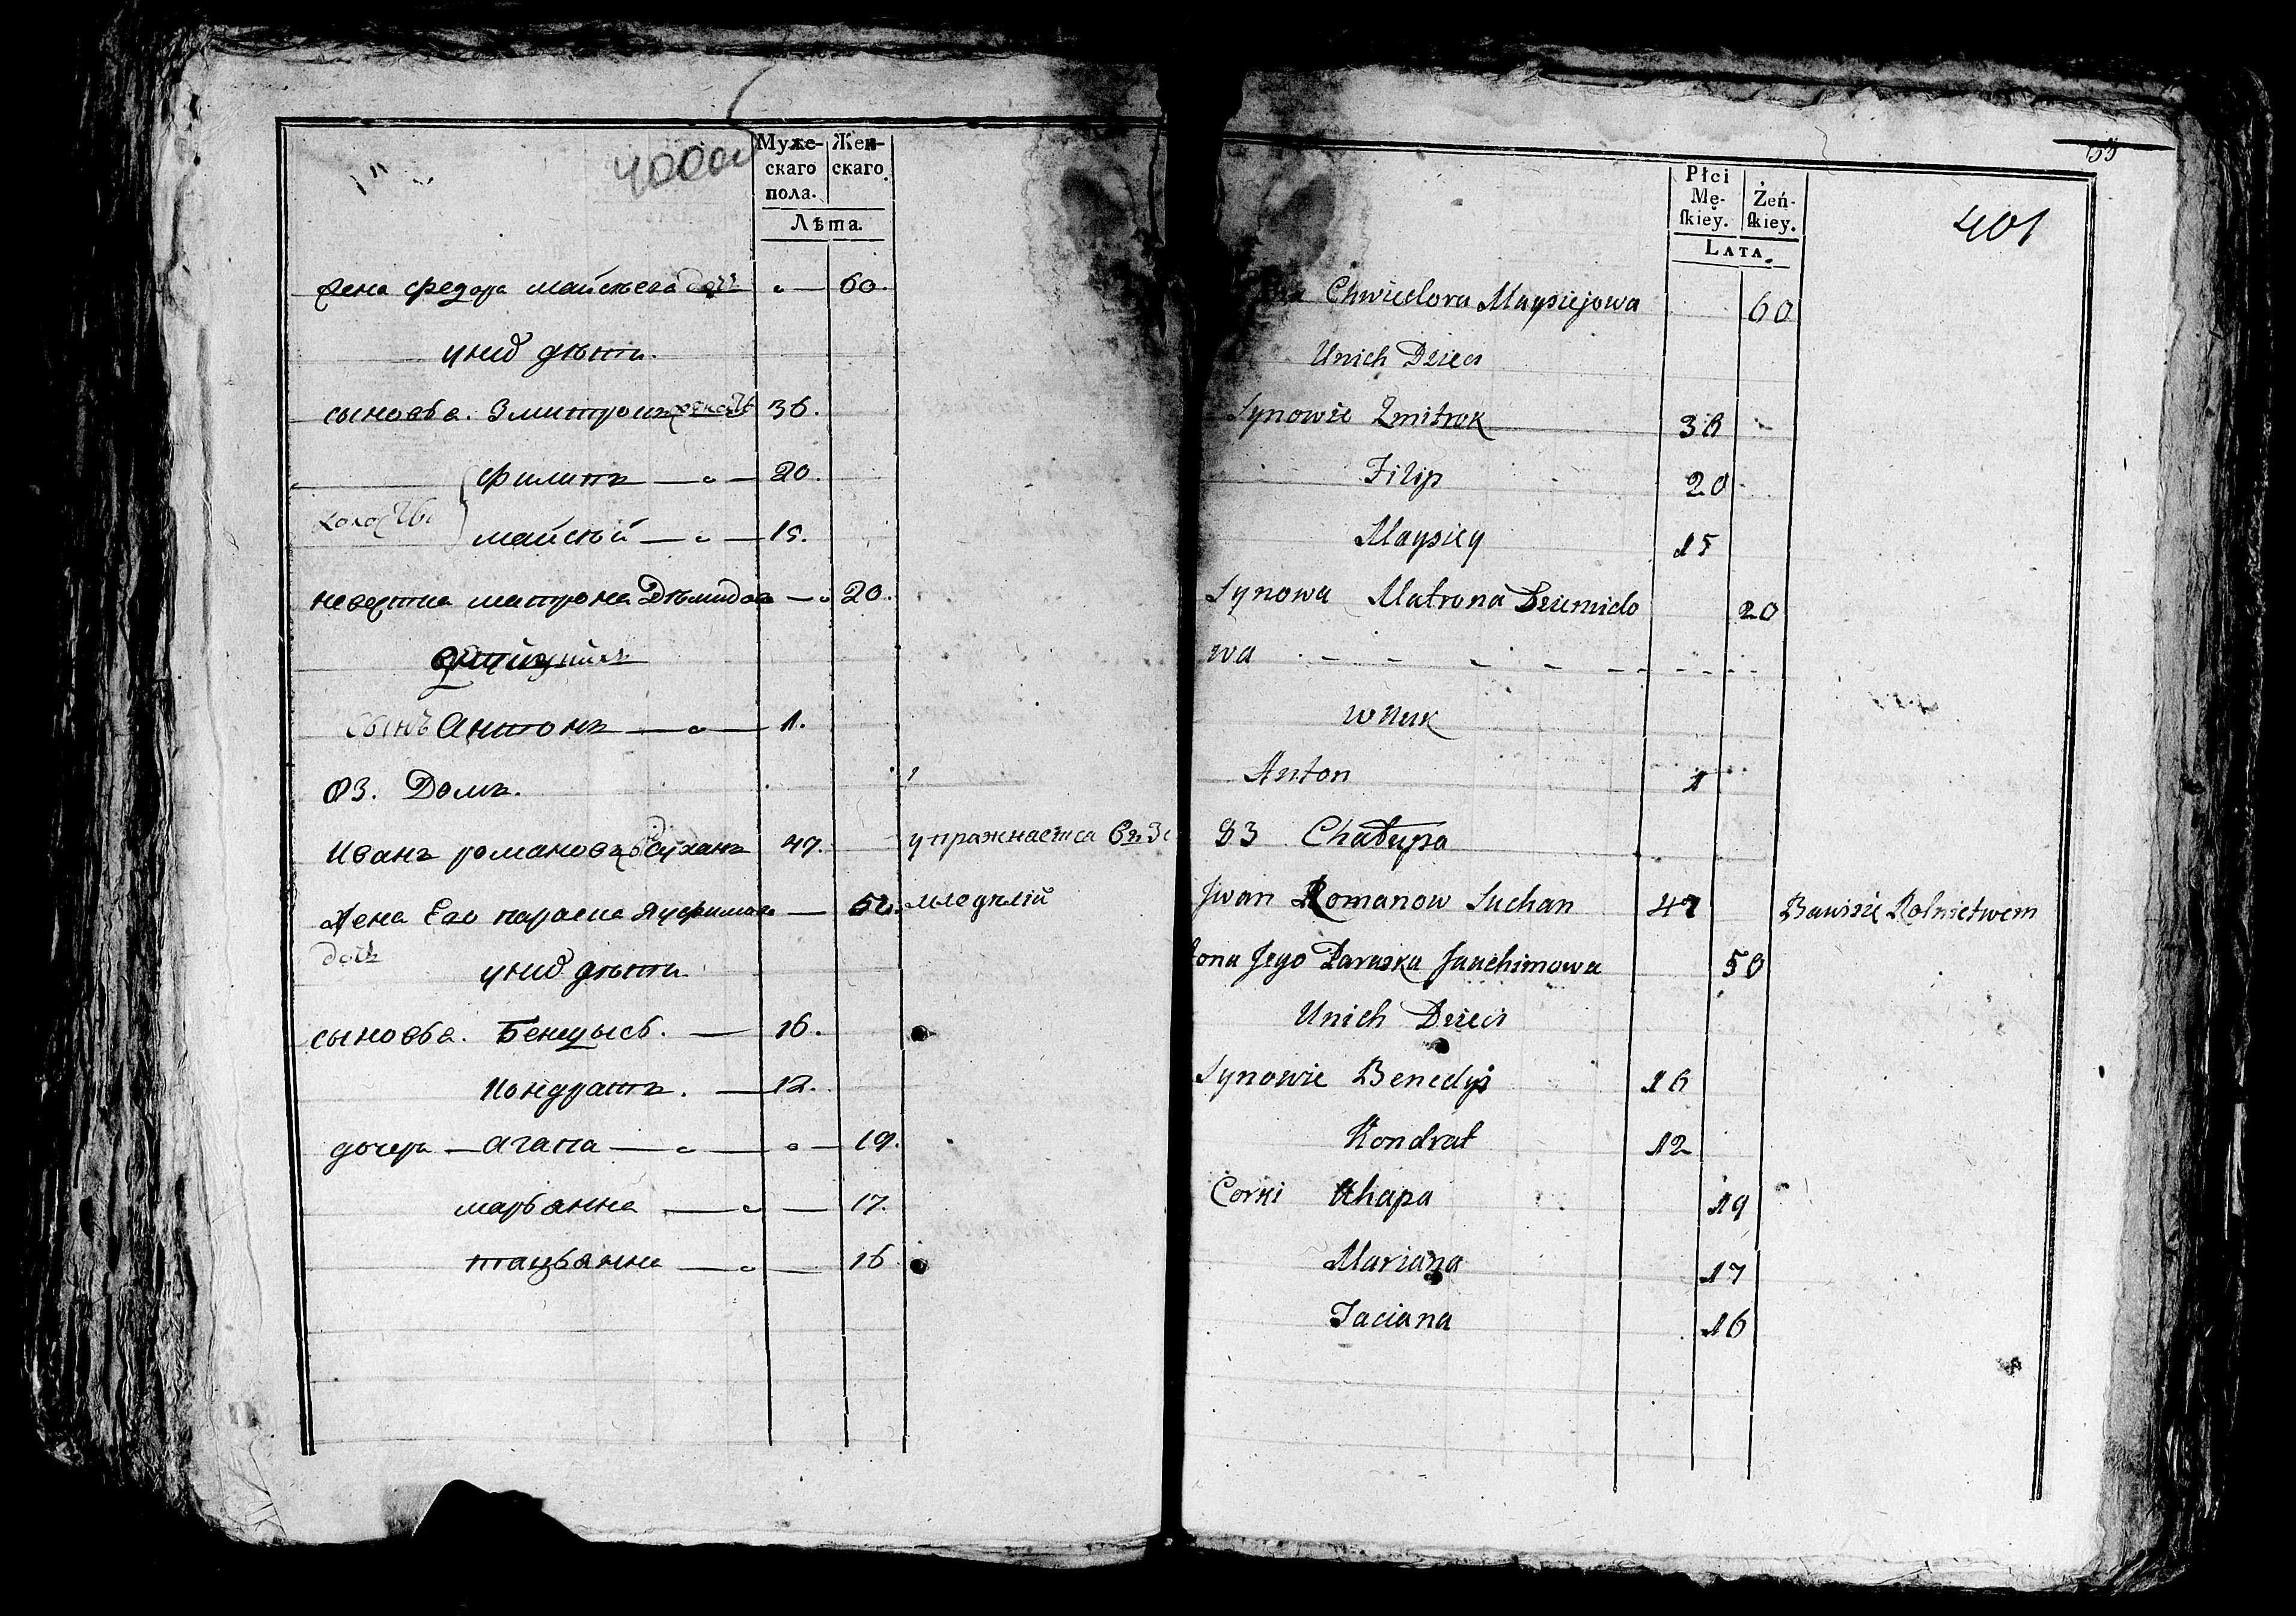 400об
Муже-
скаго
пола.
Жен-
скаго.
Лѣта.
Жена Федора Майсѣева дочь " — 60.
у них дѣти.
сыновья. Змитрокъ женатъ 36.
Филипъ — " — 20.
холосты
Майсѣй — " — 15.
невестка матрона Дѣмидова — " 20.
сынъ Антонъ — " — 1.
83. Домъ.
Иванъ романовъ Суханъ 47. упражнаетса въ Зе
Жена Его параска Яхимова — 50. мледѣлій
дочь
у них дѣти
сыновья. Бенедысь. — 16.
Кондратъ. — 12.
дочери — Агапа — " — " — 19.
марьянна — " — 17.
тацьянна — " — 16
53
401
Płci
Mę-
ſkiey.
Żeń-
ſkiey.
Lata.
Chwiedora Maysiejowa 60
Unich Dzieci
Synowie Zmitrok 36
Filip 20
Maysiey 15
Synowa Matrona Dziemido 20
wa - - - - - - - -
wnuk
Anton 1
83 Chałupa
Jwan Romanow Suchan 47 Bawisie Rolnictwem
żona Jego Paraska Jauchimowa 50
Unich Dzieci
Synowie Benedyś 16
Kondrat 12
Corki Ahapa 19
Mariana 17
Taciana 16